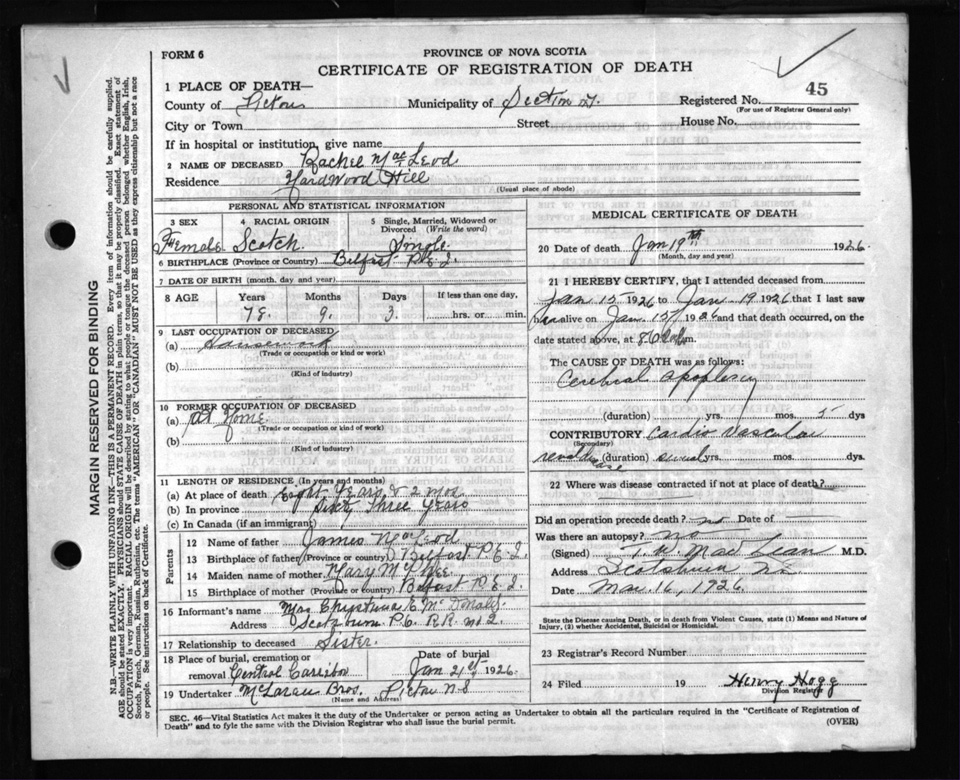 FORM 6
PROVINCE OF NOVA SCOTIA
CERTIFICATE OF REGISTRATION OF DEATH
45
1 PLACE OF DEATH—
County of Pictou Municipality of Section Registered No.
(For use of Registrar General only)
City or Town Street House No.
If in hospital or institution, give name
2 NAME OF DECEASED Rachel MacLeod
Residence Hardwood Hill
(Usual place of abode)
PERSONAL AND STATISTICAL INFORMATION
3 SEX 4 RACIAL ORIGIN 5 Single, Married, Widowed or Divorced (Write the word)
Female Scotch. Single.
6 BIRTHPLACE (Province or Country) Belfast P.E.I.
7 DATE OF BIRTH (month, day and year)
8 AGE Years Months Days If less than one day,
78. 9. 3. hrs. or min.
9 LAST OCCUPATION OF DECEASED
(a) Housework
(Trade or occupation or kind or work)
(b)
(Kind of industry)
10 FORMER OCCUPATION OF DECEASED
(a) At Home.
(Trade or occupation or kind of work)
(b)
(Kind of industry)
11 LENGTH OF RESIDENCE (In years and months)
(a) At place of death Eight Years & 2 mos.
(b) In province Sixty Three Years
(c) In Canada (if an immigrant)
Parents
12 Name of father James McLeod
13 Birthplace of father (Province or country) Belfast P.E.I.
14 Maiden name of mother Mary McPhee
15 Birthplace of mother (Province or country) Belfast P.E.I.
16 Informant's name Mrs Christina E. McDonald.
Address Scotsburn P.O. R.R. no 2.
17 Relationship to deceased Sister.
18 Place of burial, cremation or removal Central Caribou Date of burial Jan 21st 1926.
19 Undertaker McLaren Bros. Pictou N.S
(Name and Address)
MEDICAL CERTIFICATE OF DEATH
20 Date of death Jan 19th 1926.
(Month, day and year)
21 I HEREBY CERTIFY, that I attended deceased from
Jan 15 1926 to Jan 19 1926 that I last saw
her alive on Jan. 15 1926 and that death occurred, on the
date stated above, at m.
The CAUSE OF DEATH was as follows:
Cerebral apoplexy
(duration) yrs. mos. 5 dys
CONTRIBUTORY cardio vascular
(Secondary)
renal disease (duration) several yrs. mos. dys
22 Where was disease contracted if not at place of death?
Did an operation precede death? no Date of —
Was there an autopsy? no
(Signed) MacLean M.D.
Address Scotsburn N.S.
Date Mar. 16, 1926
State the Disease causing Death, or in death from Violent Causes, state (1) Means and Nature of Injury, (2) whether Accidental, Suicidal or Homicidal.
23 Registrar's Record Number
24 Filed 19 Henry Hogg
Division Registrar
SEC. 46—Vital Statistics Act makes it the duty of the Undertaker or person acting as Undertaker to obtain all the particulars required in the "Certificate of Registration of
Death" and to fyle the same with the Division Registrar who shall issue the burial permit.
(OVER)
MARGIN RESERVED FOR BINDING
N.B.—WRITE PLAINLY WITH UNFADING INK—THIS IS A PERMANENT RECORD. Every item of information should be carefully supplied.
AGE should be stated EXACTLY. PHYSICIANS should STATE CAUSE OF DEATH in plain terms, so that it may be properly classified. Exact statement of
OCCUPATION is very important. RACIAL ORIGIN will be described by stating to what people or tongue the deceased person belonged whether English, Irish,
Scotch, French, German, Russian, Ruthenian, etc. The terms "AMERICAN" OR "CANADIAN" MUST NOT BE USED as they express citizenship but not a race
or people. See instructions on back of Certificate.